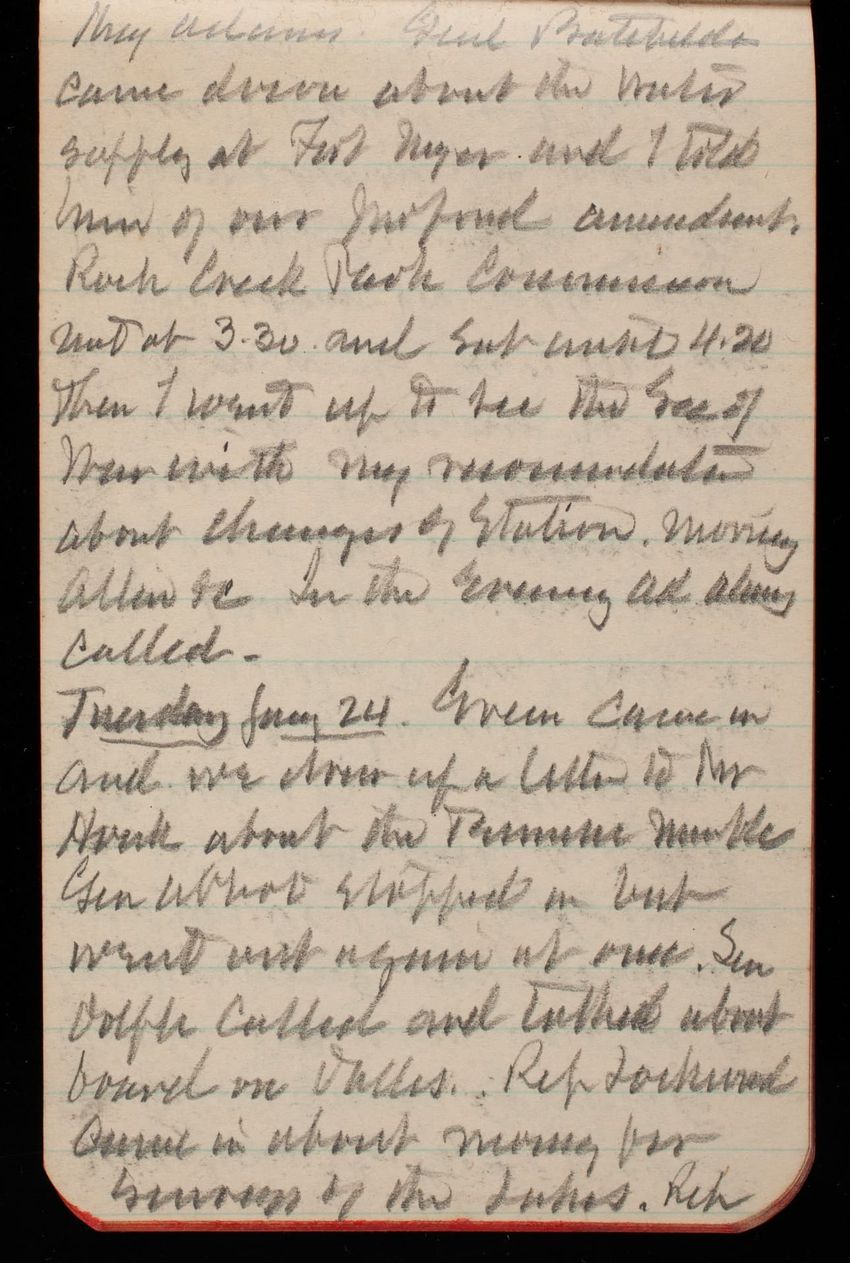 Maj Adams. Genl Batchelder
came down about the water
supply at Fort Myer and I told
him of our proposed amendment.
Rock Creek Park Commission
met at 3.30 and sat until 4.20
Then I went up to see the Sec of
War with my recommendation
about changes of Station. Moving
Allen &c In the Evening Ad
called -
Tuesday Jany 24. Green came in
and we drew up a letter to Mr
about the
Gen Abbot stopped in but
went out again at once. Sen
Dolph called and talked about
board on Dalles. Rep Lockwood
came in about money for
Surveys of the Lakes. Rep